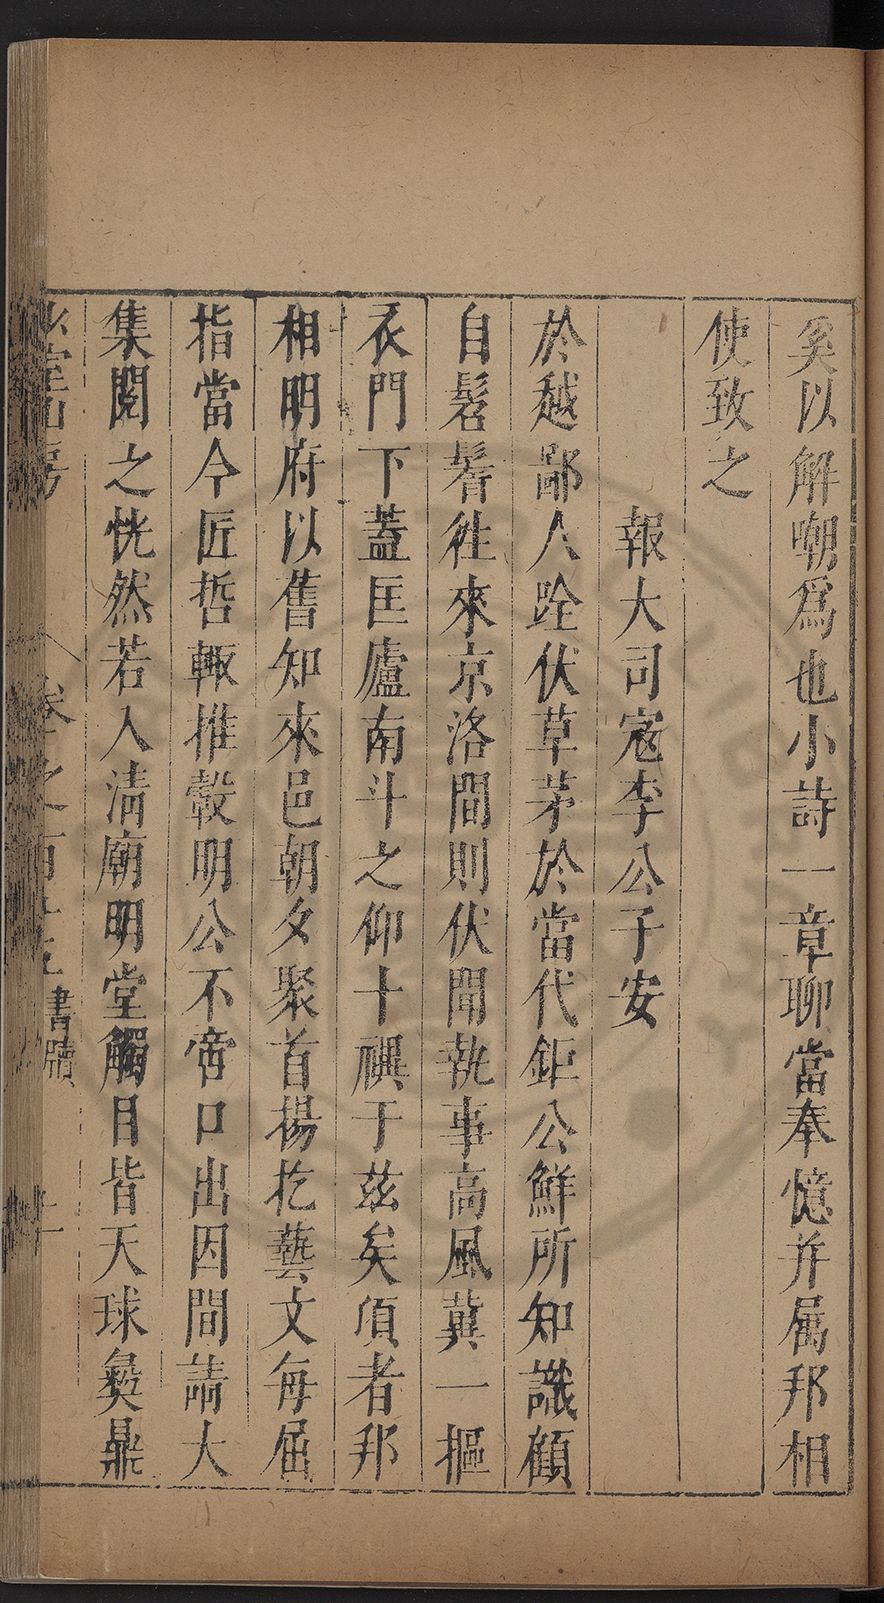 奚以解嘲爲也小詩一章聊當奉憶并属邦相
使致之
報大司寇李公子安
於越鄙人跧伏草茅於當代鉅公鮮所知識顧
自髫髾徃來京洛間則伏聞執事高風冀一摳
衣門下蓋匡廬南斗之仰十禩于兹矣頃者邦
相明府以舊知來邑朝夕聚首揚扢藝文每屈
指當今匠哲輙推轂明公不啻口出因間請大
集閱之恍然若入清廟明堂觸目皆天球彛鼎
山房 卷之百十 書牘